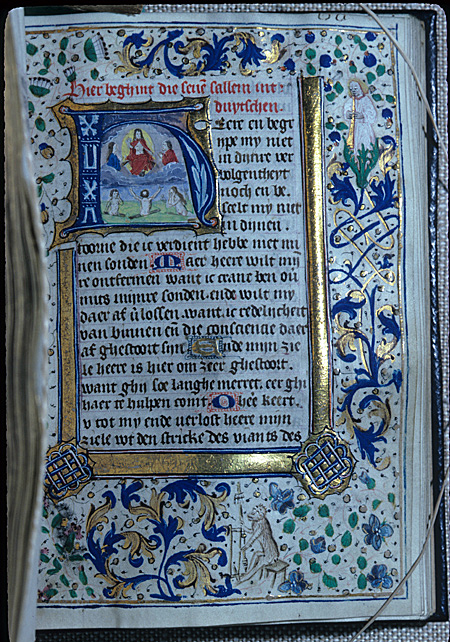 Hier beghint die seuē sallem int
duytschen.
Heere en begr
ype my niet
in dijnre ver
volgentheyt
noch en be
selt my niet
in dijnen.
toorne die ic verdient hebbe met mi
nen sonden Maer heere wilt mij
re ontfermen want ic cranc ben oū
mits mijnre sonden. ende wilt my
daer af v̄lossen. want. ic redelijcheit
van binnen eñ die consciencie daer
af ghestoort sijn Ende mijn zie
le heere is hier om zeer ghestoort.
want ghij soe langhe merret. eer ghi
haer te hulpen comt O hee keert.
v tot my ende verlost heere mijn
ziele wt den stricke des viants des